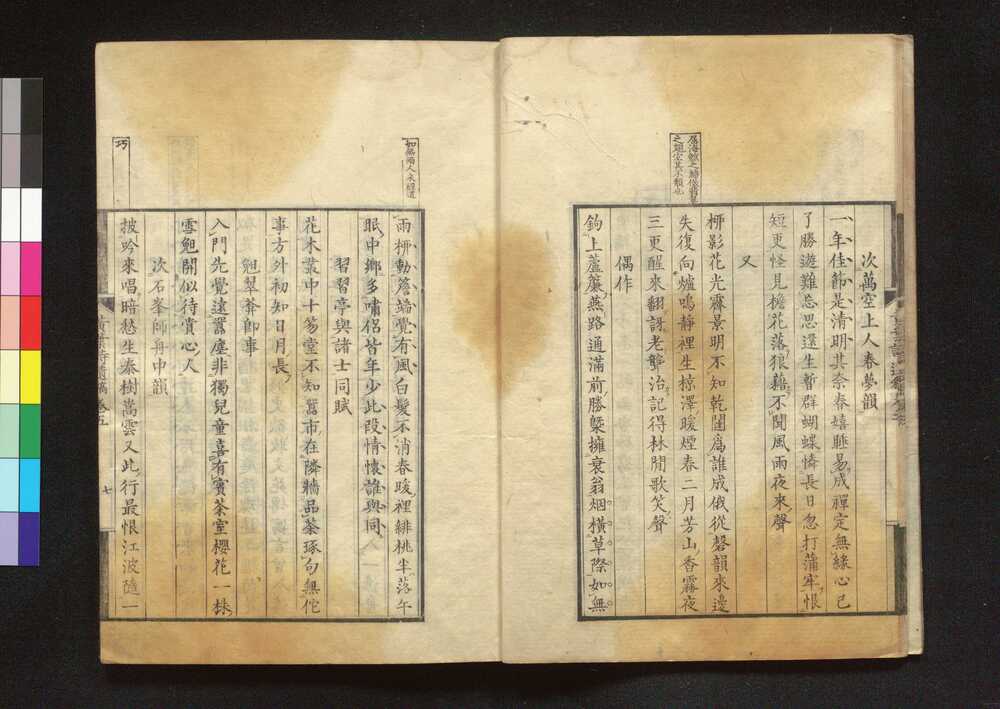 次萬空上人春夢韻
一年佳節是清明其奈春嬉睚易成禪定無緣心已
了勝遊難忘思還生暫群蝴蝶憐長日忽打蒲牢恨
短更怪見檐花落狼藉不聞風雨夜來聲
又
栁影花光霽景明不知乾闥爲誰成俄從磬韻來邊
失復向爐鳴靜裡生椋澤暖煙春二月芳山香霧夜
三更醒來翻訝老聾治記得林閒歌笑聲
偶作
鉤上蘆簾燕路通滿前勝槩擁衰翁烟橫草際如無
如無
人未經道
雨栁動簷端覺有風白髮不消春暖裡緋桃半落午
眠中鄉多嘯侶皆年少此段情懷誰與同
習習亭與諸士同賦
花木叢中十笏堂不知囂市在隣牆品茶琢句無佗
事方外初知日月長
勉翠菴卽事
入門先覺遠囂塵非獨兒童喜有賓茶室櫻花一株
雪勉開似待賞心人
次石峯師舟中韻
披吟來唱暗愁生秦樹嵩雲又此行最恨江波隨一
巧
黃葉詩遺稿 卷五
七